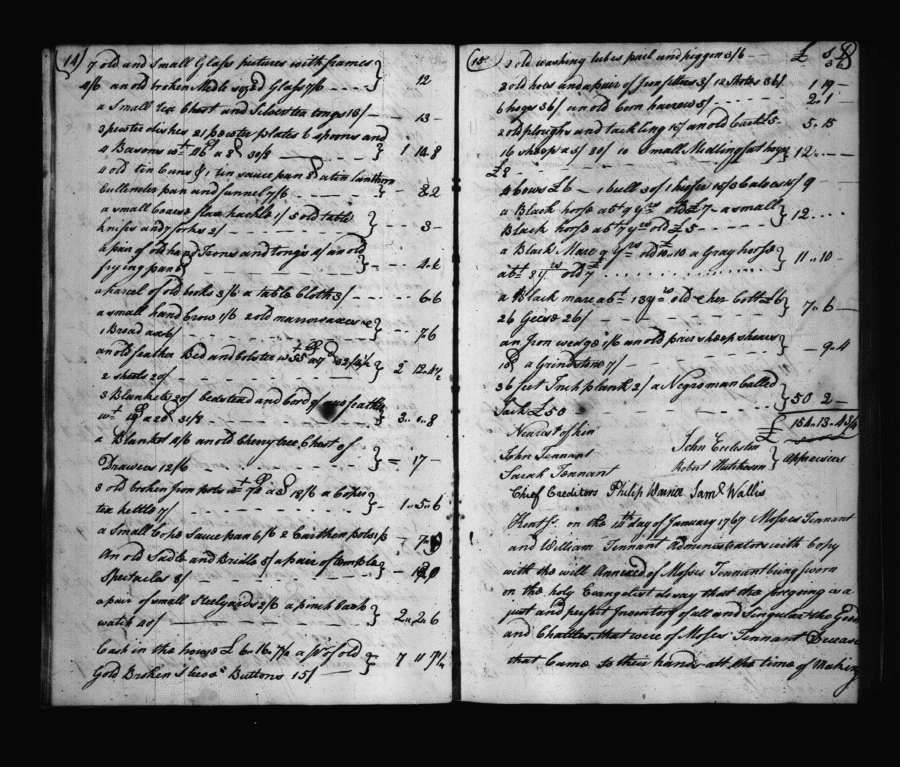 14
7 old and Small Glass pictures with frames
4/6 an old broken Midle sized Glass 7/6 } 12
a Small Tea Chest and Silver tea tongs 13/ 13
3 pewter dishes 21 pewter plates 6 spoons and
4 Basons wt 46 a 8d 30/8 } 1 10 8
4 old tin Cans & 1 tin sauce pan & a tin lanthorn
Cullender pan and funnel 7/6 } 8 2
a small Coarse flax hackle 1/ 5 old table
knifes and 7 forks 2/ } 3
a pair of old hand Irons and tongs 4/ an old
frying pan } 4 6
a parcel of old books 3/6 a table Cloth 3/ 6 6
a small hand Crow 1/6 2 old narrow axes
1 Broad ax 6/ } 7 6
an old feather Bed and bolster wt
2 sheets 20/ } 2 12 4½
3 Blankets 20/ bedstead and Cord 9/ new feather
wt 19 a 20d 31/8 } 3 0 8
a Blanket 4/6 an old Cherry tree Chest of
Drawers 12/6 } 17
3 old broken Iron pots wt 74 a 3d 18/6 a Coper
tea kettle 7/ } 1 5 6
a Small Coper Sauce pan 6/6 2 Earthen pots 1/
An old Sadle and Bridle 8/ a pair of temple
Spectacles 8/
a pair of small Steelyards 2/6 a pinch back
watch 40/ } 2 2 6
Cash in the house £ 6 16 7½ a pr of old
Gold Broken Sleeve Buttons 15/ } 7 11 7½
15
2 old washing tubes pail and piggon 3/6 £ S d
3 6
2 old hoes and a pair of Iron fetters 3/ 12 Shotes 36/ 1 19
6 hogs 36/ an old Corn harrow 5/ 2 1
2 old ploughs and tackling 15/ an old Cart £5 5 15
16 sheep a 5/ 80/ 10 Small Midling fat hogs
£8 12
4 Cows £6 1 bull 30/ 1 heifer 15/ 3 Calves 15/ 9
a Black horse abt 9 yrs old £7 a small
Black horse abt 7 yrs old £5 } 12
a Black Mare 9 yrs old £4 10 a Gray horse
abt 8 yrs old £7 } 11 10
a Black mare abt 13 yrs old & her Colt £6
26 Geese 26/ } 7 6
an Iron wedge 1/6 an old pair sheep shears
10d a Grindstone 7/ } 9 4
36 feet Inch plank 2/ a Negro man Called
Jack £50 } 50 2
£ 154 13 4¾
Nearest of kin
John Tennant John Eccleston
Sarah Tennant Robert Hutcheson } Appraisers
Chief Creditors Philip Warner Saml Wallis
Kent ss. on the 14th day of January 1767 Moses Tennant
and William Tennant Administrators with Copy
with the will Annexed of Moses Tennant being sworn
on the holy Evangelist do say that the foregoing is a
just and perfect Inventory of all and Singular the Goods
and Chattles that were of Moses Tennant Deceased
that Came to their hands att the time of Making